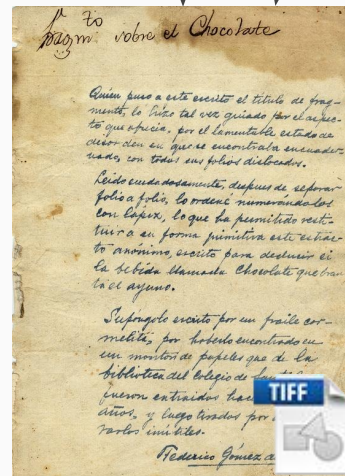 Fragm.to sobre el Chocolate
Quien puso a este escrito el titulo de frag-
mento, lo hizo tal vez guiado por el aspec-
to que ofrecia, por el lamentable estado de
desorden en que se encontraba encuader-
nado, con todos sus folios dislocados.
Leido cuidadosamente, despues de separar
folio a folio, lo ordené numerandolos
con lapiz, lo que ha permitido resti-
tuir a su forma primitiva este extrac-
to anonimo, escrito para deducir si
la bebida llamada Chocolate quebran-
ta el ayuno.
Supongolo escrito por un fraile car-
melita, por haberlo encontrado en
un monton de papeles que de la
biblioteca del Colegio de
fueron extraidos hace
años, y luego tirados por
varlos inutiles.
Federico Gómez
TIFF